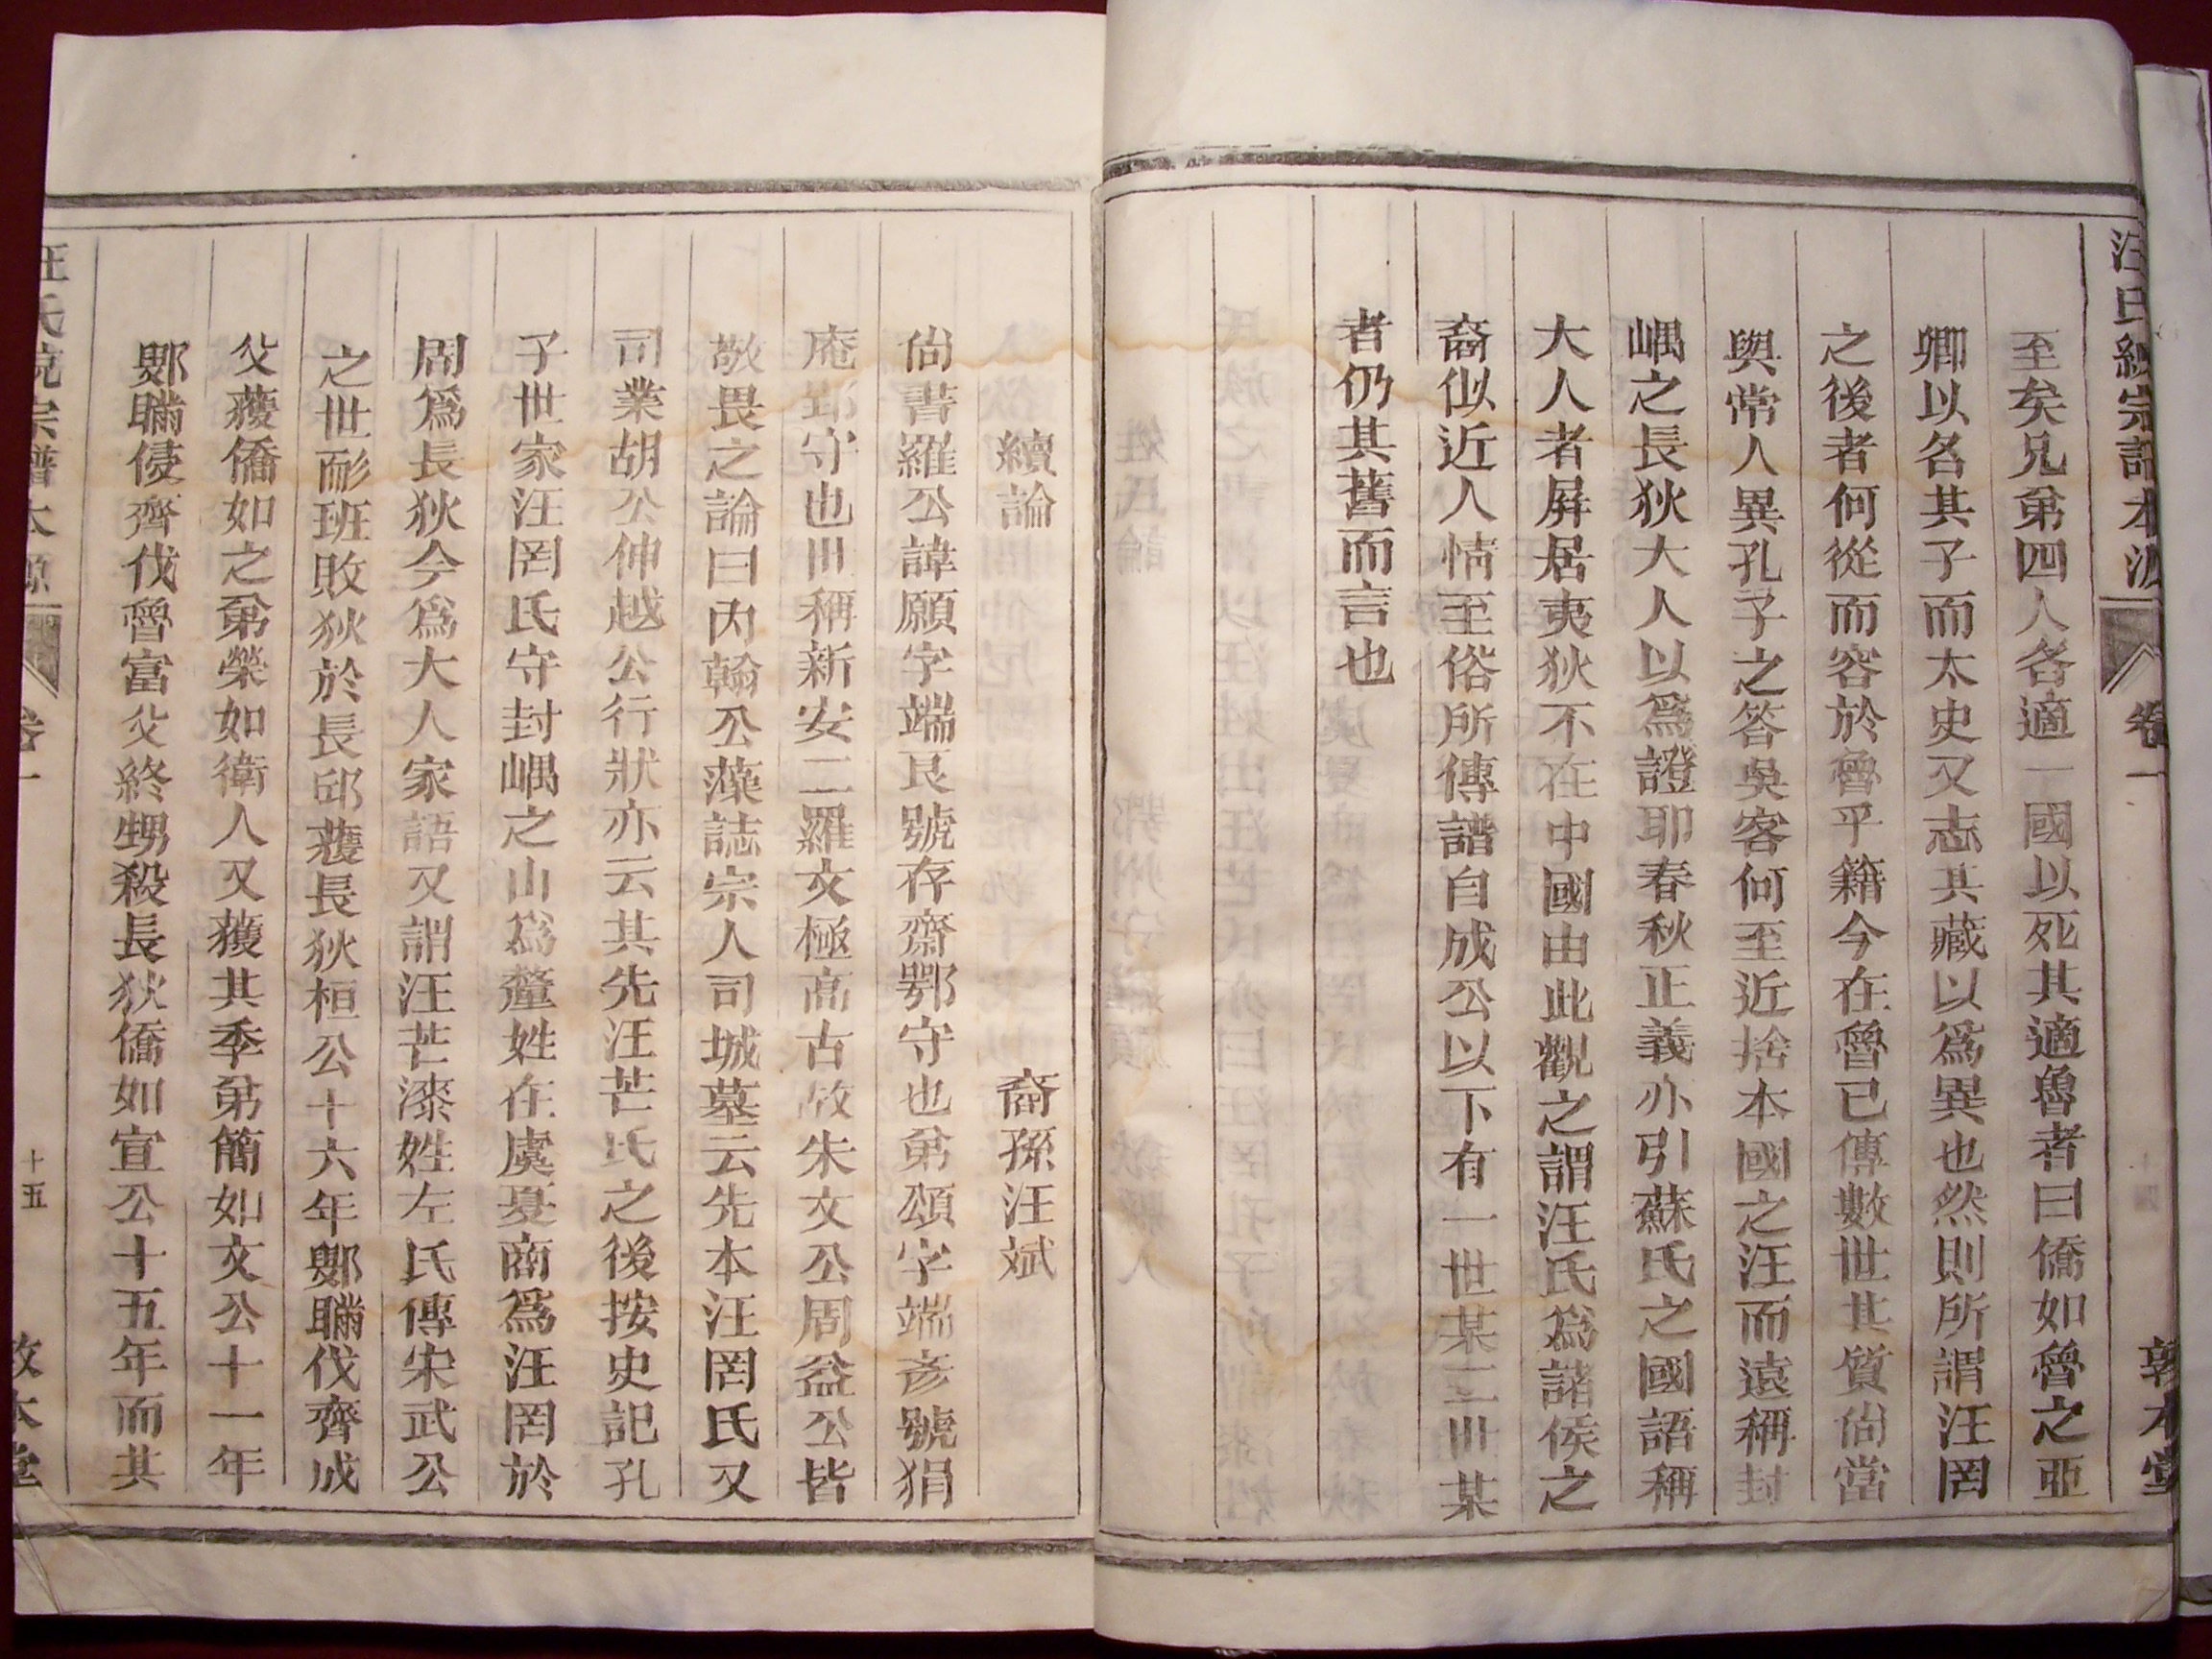 汪氏統宗譜本源
卷一
敦本堂
至矣兄弟四人各適一國以死其適魯者曰僑如魯之亞
卿以名其子而太史又志其藏以爲異也然則所謂汪罔
之後者何從而容於魯乎籍今在魯已傳數世其質尙當
與常人異孔子之答吳客何至近捨本國之汪而遠稱封
嵎之長狄大人以爲證耶春秋正義亦引蘇氏之國語稱
大人者屛居夷狄不在中國由此觀之謂汪氏爲諸侯之
裔似近人情至俗所傳譜自成公以下有一世某二世某
者仍其舊而言也
續論 裔孫汪斌
尙書羅公諱願字端良號存齋鄂守也弟頌字端彥號狷
庵郢守也世稱新安二羅文極高古故朱文公周益公皆
敬畏之論曰內翰公藻誌宗人司城墓云先本汪罔氏又
司業胡公伸越公行狀亦云其先汪芒氏之後按史記孔
子世家汪罔氏守封嵎之山爲釐姓在虞夏商爲汪罔於
周爲長狄今爲大人家語又謂汪芒漆姓左氏傳宋武公
之世耏班敗狄於長邱獲長狄桓公十六年鄋瞞伐齊成
父獲僑如之弟榮如衛人又獲其季弟簡如文公十一年
鄋瞞侵齊伐魯富父終甥殺長狄僑如宣公十五年而其
汪氏統宗譜本源
卷一
十五
敦本堂